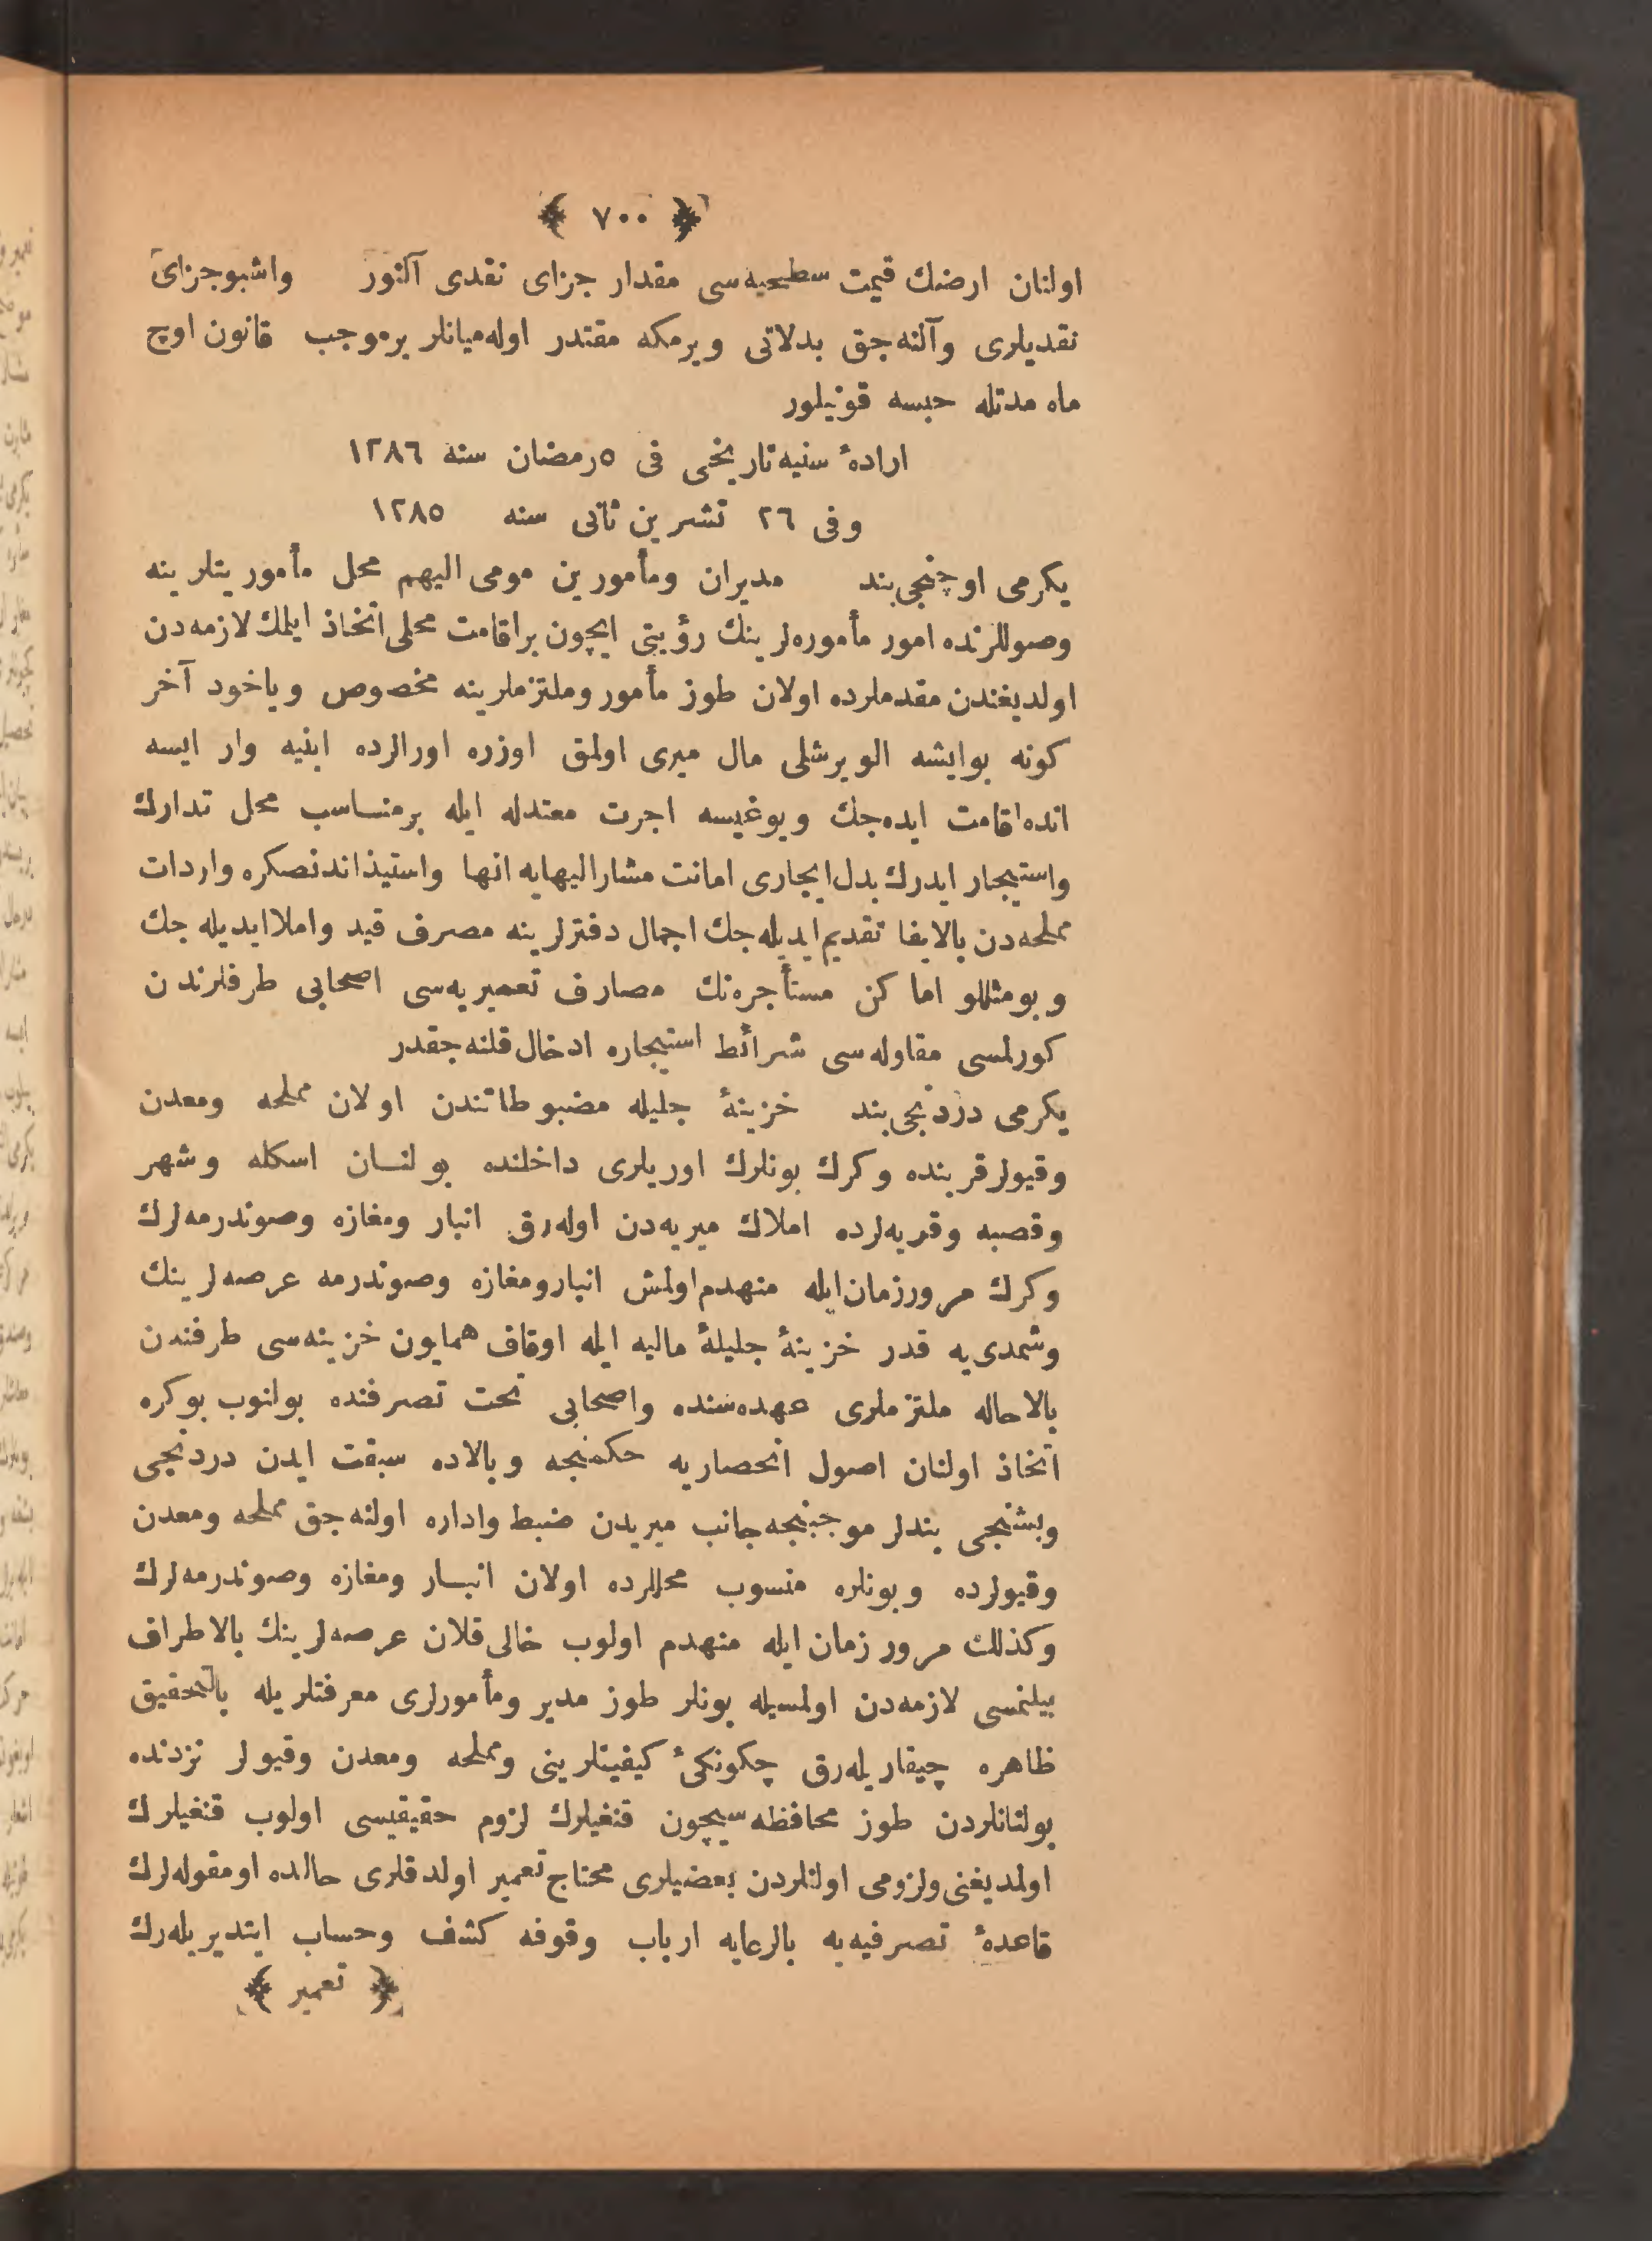 ﴿ ٧٠٠ ﴾
اولنان ارضك قيمت سطحيه‌سى مقدار جزاى نقدى آلنور واشبوجزاى
نقديلرى وآلنه‌جق بدلاتى ويرمكه مقتدر اوله‌ميانلر برموجب قانون اوچ
ماه مدتله حبسه قونيلور
ارادهٔ سنيه‌تاريخى فى ٥رمضان سنه ١٢٨٦
وفى ٢٦ تشرين ثانى سنه ١٢٨٥
يكرمى اوچنجى‌بند مديران ومأمورين مومى اليهم محل مأموريتلرينه
وصوللرنده امور مأموره‌لرينك رؤيتى ايچون براقامت محلى‌اتخاذ ايلمك لازمه‌دن
اولديغندن مقدملرده اولان طوز مأمور وملتزملرينه مخصوص وياخود آخر
كونه بوايشه الويرشلى مال ميرى اولمق اوزره اورالرده ابنيه وار ايسه
انده‌اقامت ايده‌جك ويوغيسه اجرت معتدله ايله برمناسب محل تدارك
واستيجار ايدرك بدل‌ايجارى امانت مشاراليهايه انها واستيذاندنصكره واردات
مملحه‌دن بالايفا تقديم‌ايديله‌جك اجمال دفترلرينه مصرف قيد واملاايديله جك
وبومثللو اما كن مستأجره‌نك مصارف تعميريه‌سى اصحابى طرفلرندن
كورلمسى مقاوله‌سى شرائط استيجاره ادخال قلنه‌جقدر
يكرمى دردنجى‌بند خزينهٔ جليله مضبوطاتندن اولان مملحه ومعدن
وقيولرقربنده وكرك بونلرك اوريلرى داخلنده بولنـان اسكله وشهر
وقصبه وقريه‌لرده املاك ميريه‌دن اوله‌رق انبار ومغازه وصوندرمه‌لرك
وكرك مرورزمان‌ايله منهدم‌اولمش انبارومغازه وصوندرمه عرصه‌لرينك
وشمدى‌يه قدر خزينهٔ جليلهٔ ماليه ايله اوقاف همايون خزينه‌سى طرفندن
بالاحاله ملتزملرى عهده‌سنده واصحابى تحت تصرفنده بولنوب بوكره
اتخاذ اولنان اصول انحصاريه حكمنجه وبالاده سبقت ايدن دردنجى
وبشنجى بندلر موجبنجه‌جانب ميريدن ضبط واداره اولنه‌جق مملحه ومعدن
وقيولرده وبونلره منسوب محللرده اولان انبـار ومغازه وصوندرمه‌لرك
وكذلك مرور زمان ايله منهدم اولوب خالى‌قلان عرصه‌لرينك بالاطراف
بيلنمسى لازمه‌دن اولمسيله بونلر طوز مدير ومأمورلرى معرفتلريله بالتحقيق
ظاهره چيقاريله‌رق چكونكىٔ كيفيتلرينى ومملحه ومعدن وقيولر نزدنده
بولنانلردن طوز محافظه‌سيچون قنغيلرك لزوم حقيقيسى اولوب قنغيلرك
اولمديغنى‌ولزومى اولنلردن بعضيلرى محتاج‌تعمير اولدقلرى حالده اومقوله‌لرك
قاعدهٔ تصرفيه‌يه بالرعايه ارباب وقوفه كشف وحساب ايتديريله‌رك
﴿ تعمير ﴾